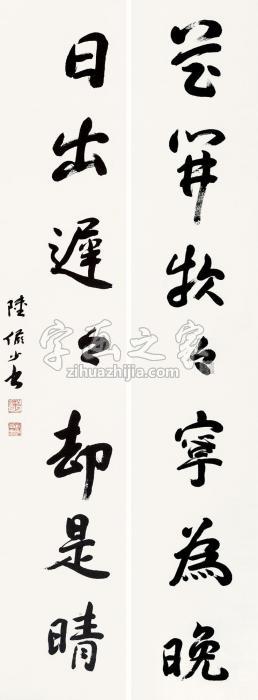 花開款々寧為晚
日出遲々却是晴
陸儼少書
字画之家
www.zihuazhijia.com